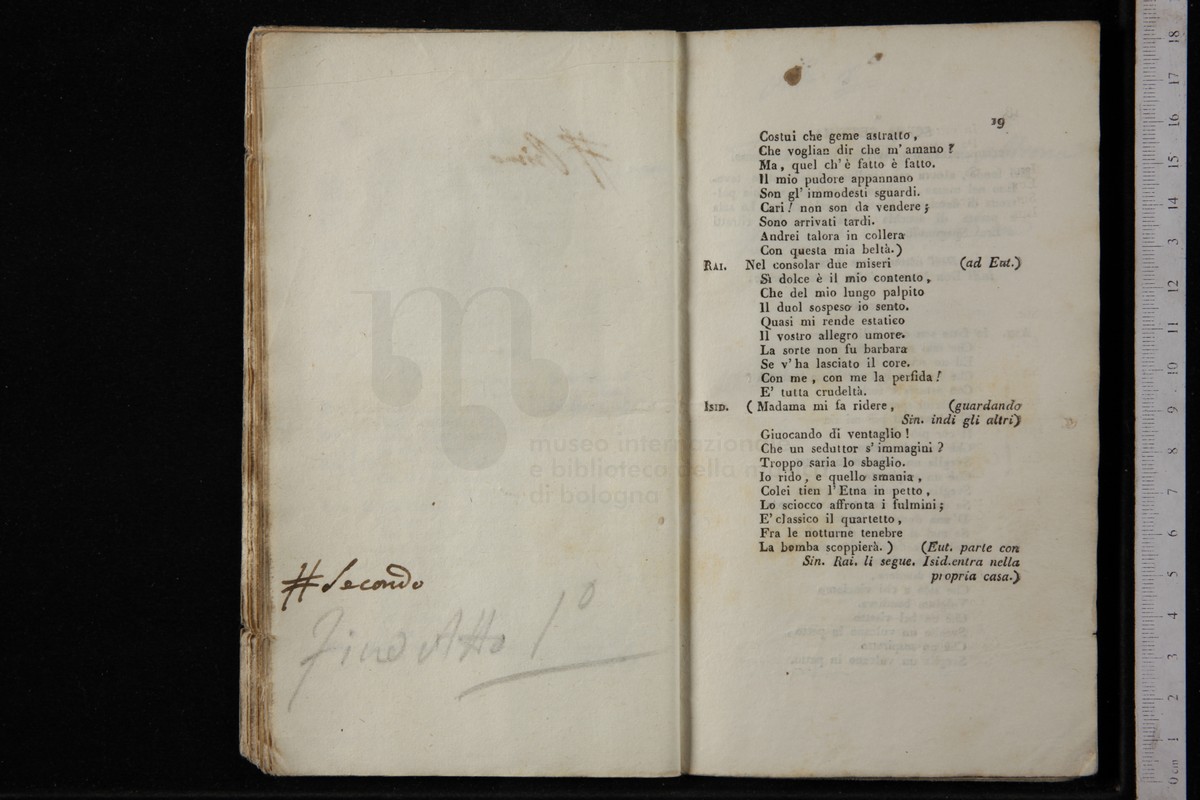 # Secondo
Fine Atto 1º
museo internazionale
e biblioteca della musica
di bologna
19
Costui che geme astratto,
Che voglian dir che m'amano?
Ma, quel ch'è fatto è fatto.
Il mio pudore appannano
Son gl'immodesti sguardi.
Cari! non son da vendere;
Sono arrivati tardi.
Andrei talora in collera
Con questa mia beltà.)
RAI. Nel consolar due miseri (ad Eut.)
Sì dolce è il mio contento,
Che del mio lungo palpito
Il duol sospeso io sento.
Quasi mi rende estatico
Il vostro allegro umore.
La sorte non fu barbara
Se v'ha lasciato il core.
Con me, con me la perfida!
E' tutta crudeltà.
ISID. (Madama mi fa ridere, (guardando
Sin. indi gli altri)
Giuocando di ventaglio!
Che un seduttor s'immagini?
Troppo saria lo sbaglio.
Io rido, e quello smania,
Colei tien l'Etna in petto,
Lo sciocco affronta i fulmini;
E' classico il quartetto,
Fra le notturne tenebre
La bomba scoppierà.) (Eut. parte con
Sin. Rai. li segue. Isid. entra nella
propria casa.)
0 cm 1 2 3 4 5 6 7 8 9 10 11 12 13 14 15 16 17 18